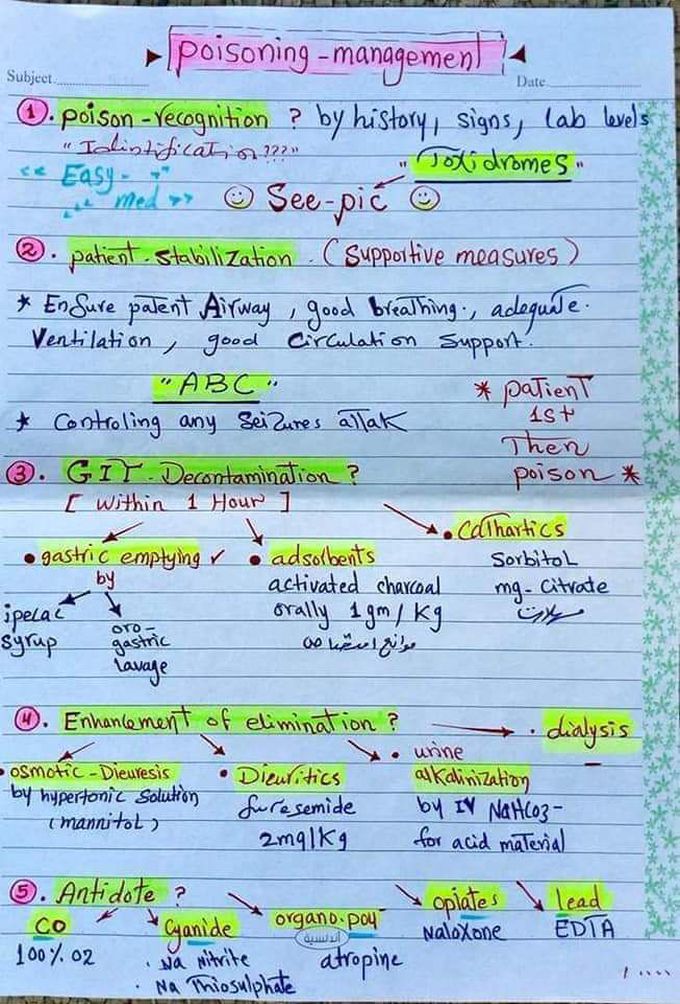 poisoning-management
Subject.
Date.
1. poison-recognition ? by history, signs, lab levels
"Idintification???"
"Toxidromes"
«Easy-»
«med»
See-pic
2. patient-stabilization. (supportive measures)
* Ensure patent Airway, good breathing., adequate.
Ventilation, good Circulation Support.
"ABC"
* Controling any Seizures attak
* patient
1st
Then
poison *
3. GIT-Decontamination?
[within 1 Hour]
• gastric emptying ✓
by
ipecac
syrup
oro-
gastric
lavage
• adsorbents
activated charcoal
orally 1gm/Kg
موانع امتصاص
• Cathartics
Sorbitol
mg-Citrate
مسهلات
4. Enhancement of elimination?
• dialysis
• osmotic-Dieuresis
by hypertonic solution
(mannitol)
• Dieuritics
furesemide
2mg/Kg
• urine
alkalinization
by IV NaHCO3-
for acid material
5. Antidote?
CO
100% O2
Cyanide
• Na nitrite
• Na Thiosulphate
organo.poy
atropine
opiates
Naloxone
lead
EDTA